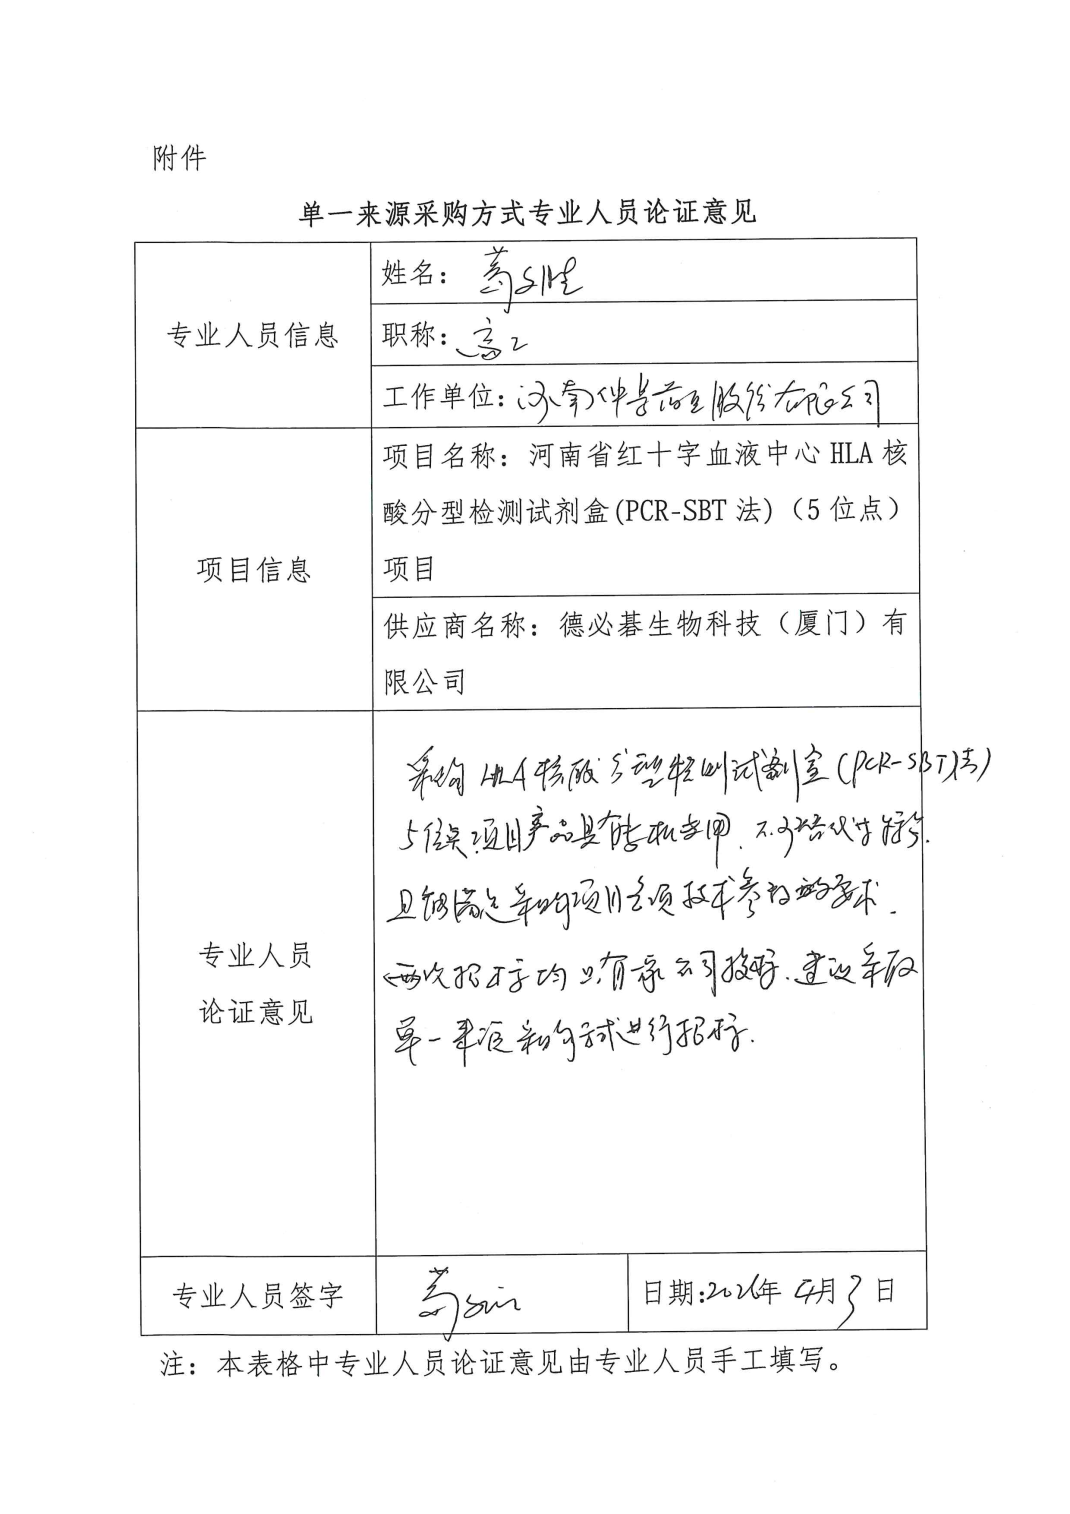 附件
单一来源采购方式专业人员论证意见
专业人员信息
姓名：
职称：高工
工作单位：河南仲景药业股份有限公司
项目信息
项目名称：河南省红十字血液中心 HLA 核
酸分型检测试剂盒(PCR-SBT 法)（5 位点）
项目
供应商名称：德必碁生物科技（厦门）有
限公司
专业人员
论证意见
采购 HLA 核酸分型检测试剂盒(PCR-SBT法)
5位点项目产品具有专利专用、不可替代性特征.
且能满足采购项目各项技术参数的要求.
两次招标均只有 公司投标.建议采取
单一来源采购方式进行招标.
专业人员签字
日期:2026年4月3日
注：本表格中专业人员论证意见由专业人员手工填写。